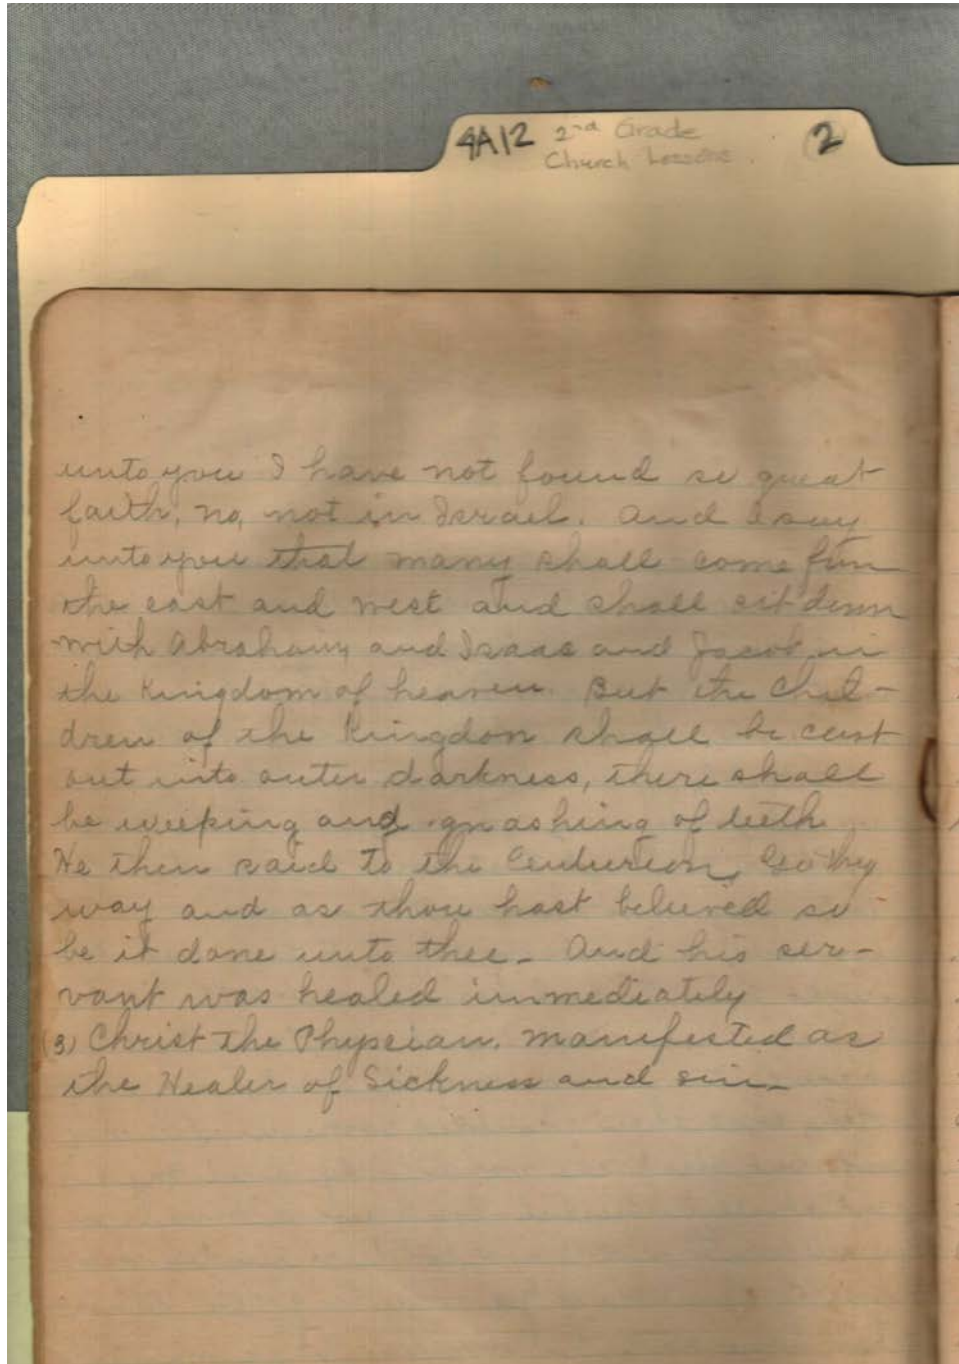 4A12 2nd Grade 2
Church Lessons.
unto you I have not found so great
faith, no, not in Israel. And I say
unto you that many shall come from
the east and west and shall sit down
with Abraham, and Isaac and Jacob in
the Kingdom of heaven. But the Chil-
dren of the Kingdon shall be cast
out into outer darkness, there shall
be weeping and gnashing of teeth.
He then said to the Centurion, Go thy
way and as thou hast believed so
be it done unto thee - And his ser-
vant was healed immediately
(3) Christ the Physcian. manifested as
the Healer of Sickness and sin -